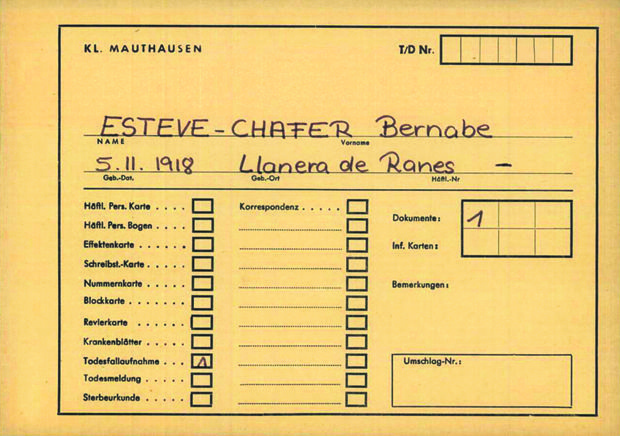 KL. MAUTHAUSEN T/D Nr.
ESTEVE-CHAFER Bernabe
NAME Vorname
5.11.1918 Llanera de Ranes –
Geb.-Dat. Geb.-Ort Häftl.-Nr
Häftl. Pers. Karte . . . . Korrespondenz . . . . .
Häftl. Pers. Bogen . . . .
Dokumente: 1
Effektenkarte . . . . .
Inf. Karten:
Schreibst.-Karte . . . . .
Nummernkarte . . . . .
Bemerkungen:
Blockkarte . . . . .
Revierkarte . . . . . .
Krankenblätter . . . . .
Todesfallaufnahme . . . . . 1
Umschlag-Nr.:
Todesmeldung . . . . .
Sterbeurkunde . . . . .